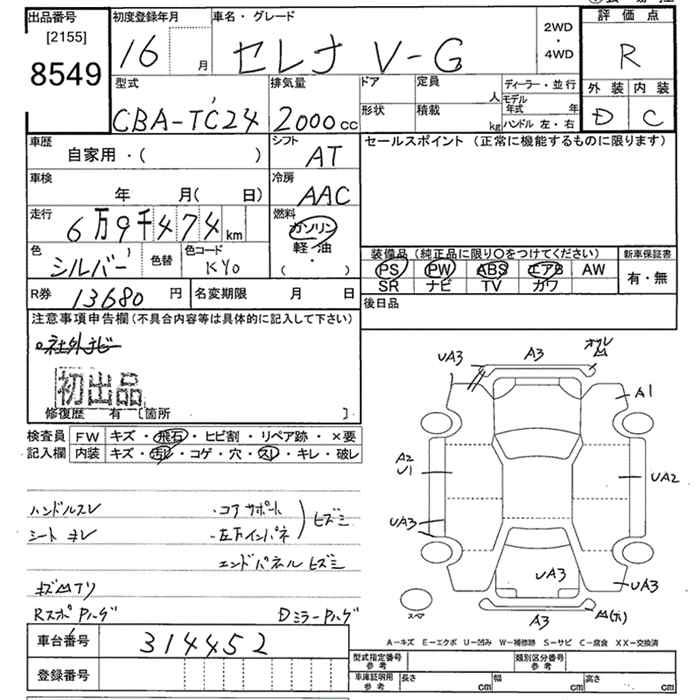 出品番号
[2155]
8549
初度登録年月
16 月
車名・グレード
セレナ V-G
2WD
・
4WD
評価点
R
外装 内装
D C
型式
CBA-TC24
排気量
2000cc
ドア
形状
定員
人
積載
kg
ディーラー・並行
モデル年式 年
ハンドル 左・右
車歴
自家用・( )
シフト
AT
セールスポイント (正常に機能するものに限ります)
車検
年 月( 日)
冷房
AAC
走行
6万9千474km
燃料
ガソリン
軽・油
・
( )
色
シルバー
色替
色コード
KY0
装備品 (純正品に限り〇をつけてください)
PS PW ABS エアB AW
SR ナビ TV カワ
新車保証書
有・無
R券 13680円
名変期限 月 日
後日品
注意事項申告欄 (不具合内容等は具体的に記入して下さい)
社外ナビ
初出品
修復歴 有 [箇所 ]
検査員
記入欄
FW キズ・飛石・ヒビ割・リペア跡・×要
内装 キズ・汚レ・コゲ・穴・スレ・キレ・破レ
ハンドルスレ
・コアサポート
・左下インパネ
ヒズミ
エンドパネル ヒズミ
Rスポ ハゲ
Dミラーハゲ
UA3
A3
A1
A2
U1
UA2
UA3
UA3
UA3
A3
スペア
A-キズ E-エクボ U-凹み W-補修跡 S-サビ C-腐食 XX-交換済
車台番号 314452
登録番号
型式指定番号
参考
類別区分番号
参考
車庫証明用
参考
長さ cm
幅 cm
高さ cm